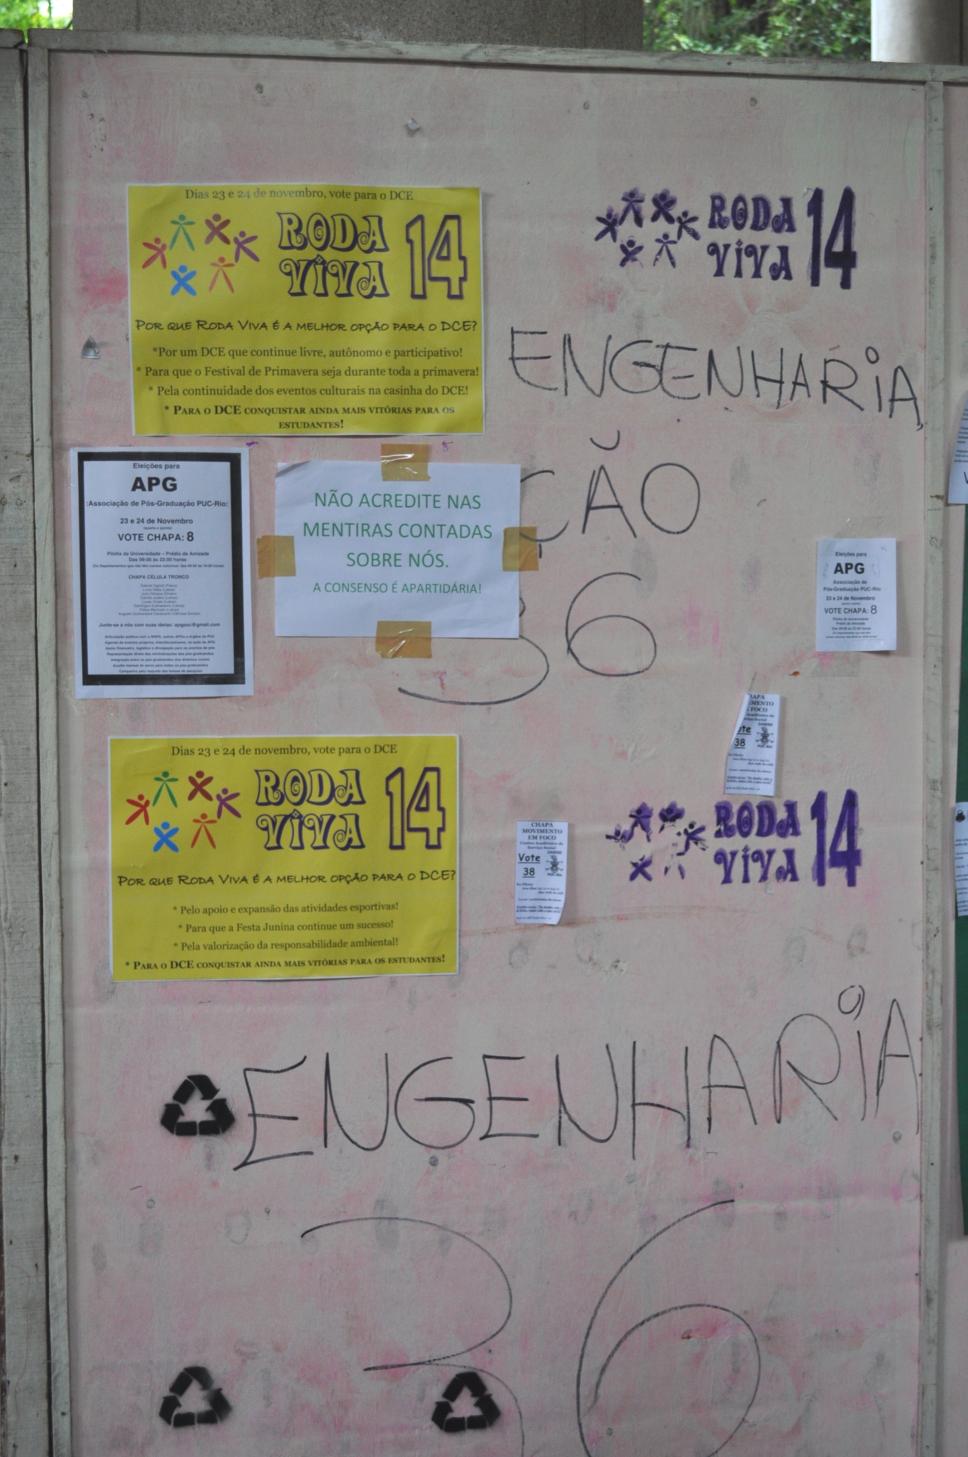 Dias 23 e 24 de novembro, vote para o DCE
RODA
VIVA
14
POR QUE RODA VIVA É A MELHOR OPÇÃO PARA O DCE?
*Por um DCE que continue livre, autônomo e participativo!
* Para que o Festival de Primavera seja durante toda a primavera!
* Pela continuidade dos eventos culturais na casinha do DCE!
* PARA O DCE CONQUISTAR AINDA MAIS VITÓRIAS PARA OS
ESTUDANTES!
RODA
VIVA
14
ENGENHARIA
ÇÃO
36
Eleições para
APG
(Associação de Pós-Graduação PUC-Rio)
23 e 24 de Novembro
VOTE CHAPA: 8
Pilotis da Universidade - Prédio da Amizade
CHAPA CÉLULA TRONCO
NÃO ACREDITE NAS
MENTIRAS CONTADAS
SOBRE NÓS.
A CONSENSO É APARTIDÁRIA!
Eleições para
APG
Associação de
Pós-Graduação PUC-Rio
23 e 24 de Novembro
VOTE CHAPA: 8
38
Dias 23 e 24 de novembro, vote para o DCE
RODA
VIVA
14
POR QUE RODA VIVA É A MELHOR OPÇÃO PARA O DCE?
* Pelo apoio e expansão das atividades esportivas!
* Para que a Festa Junina continue um sucesso!
* Pela valorização da responsabilidade ambiental!
* PARA O DCE CONQUISTAR AINDA MAIS VITÓRIAS PARA OS ESTUDANTES!
CHAPA
MOVIMENTO
EM FOCO
Centro Acadêmico de
Serviço Social
Vote
38
RODA
VIVA
14
ENGENHARIA
36